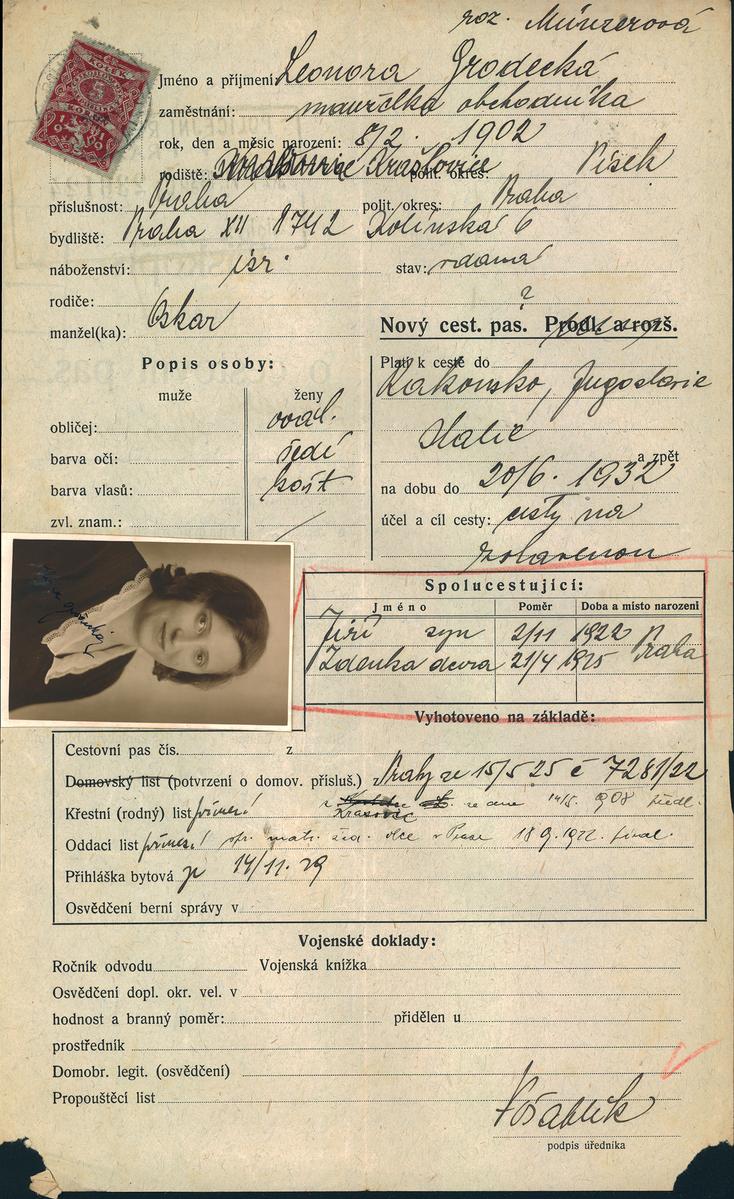 roz. Münzerová
KOLEK
5
Jméno a příjmení: Leonora Grodecká
zaměstnání: manželka obchodníka
rok, den a měsíc narození: 8/2. 1902
rodiště: Krašlovice polit. okres: Písek
příslušnost: Praha polit. okres: Praha
bydliště: Praha XII 1742 Kolínská 6
náboženství: isr. stav: vdaná
rodiče: ?
manžel(ka): Oskar
Nový cest. pas. Prodl. a rozš.
Popis osoby:
muže ženy
obličej: oval.
barva očí: šedí
barva vlasů: kašt
zvl. znam.:
Platí k cestě do
Rakousko, Jugoslavie
Halič
a zpět
na dobu do 20/6. 1932
účel a cíl cesty: cesty na
zotavenou
Spolucestující:
Jméno Poměr Doba a místo narození
Jiří syn 2/11 1922 Praha
Zdenka dcera 21/4 1925
Vyhotoveno na základě:
Cestovní pas čís. z
Domovský list (potvrzení o domov. přísluš.) z Prahy ze 15/5 25 č 7281/22
Křestní (rodný) list z Krašovic ze dne 14/5. 908
Oddací list matr. 18 9. 1922.
Přihláška bytová 14/11. 29
Osvědčení berní správy v
Vojenské doklady:
Ročník odvodu Vojenská knížka
Osvědčení dopl. okr. vel. v
hodnost a branný poměr: přidělen u
prostředník
Domobr. legit. (osvědčení)
Propouštěcí list
podpis úředníka